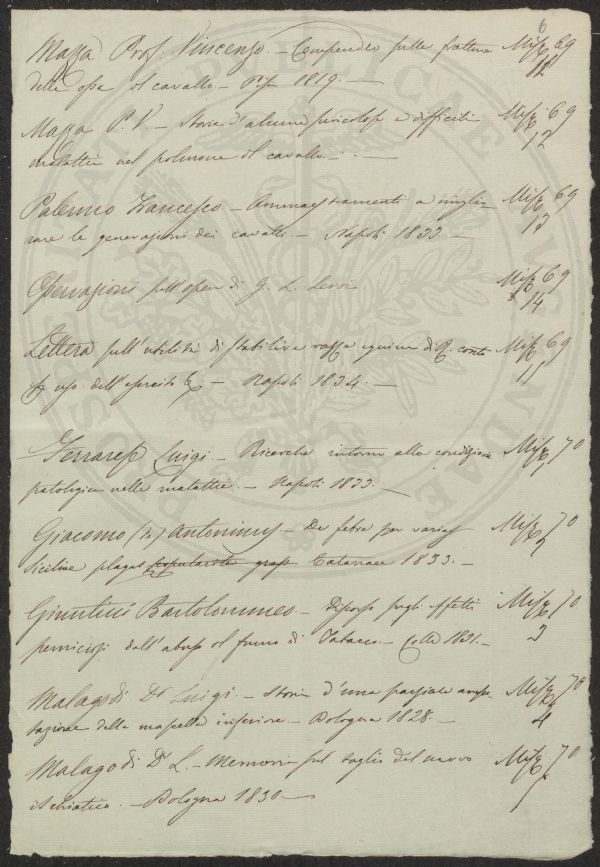 6
Mazza Prof. Vincenzo. — Compendio sulle fratture Misc. 69
delle ossa del cavallo. — Pisa 1819. — 12
Mazza P. V. — Storie d'alcune pericolose e difficili Misc. 69
malattie nel polmone del cavallo. — 12
Palermo Francesco. — Ammaestramenti a miglio- Misc. 69
rare le generazioni dei cavalli. — Napoli 1833. — 13
Osservazioni sull'opera di G. L. Leroi. Misc. 69
14
Lettera sull'utilità di stabilire razze equine di R. conto Misc. 69
per uso dell'esercito — Napoli 1834. — 11
Ferrarese Luigi. — Ricerche intorno alla condizione Misc. 70
patologica nelle malattie. — Napoli 1833. — 1
Giacomo (di) Antoninus — De febre per varias Misc. 70
Siciliae plagas Catanae 1833. — 2
Giuntini Bartolommeo — Discorso sugli effetti Misc. 70
perniciosi dall'abuso del fumo di Tabacco. — Colle 1821. — 3
Malagodi Dr. Luigi. — Storia d'una parziale ampu- Misc. 70
tazione della mascella inferiore. — Bologna 1828. — 4
Malagodi Dr. L. — Memoria sul taglio del nervo Misc. 70
ischiatico. — Bologna 1830 —